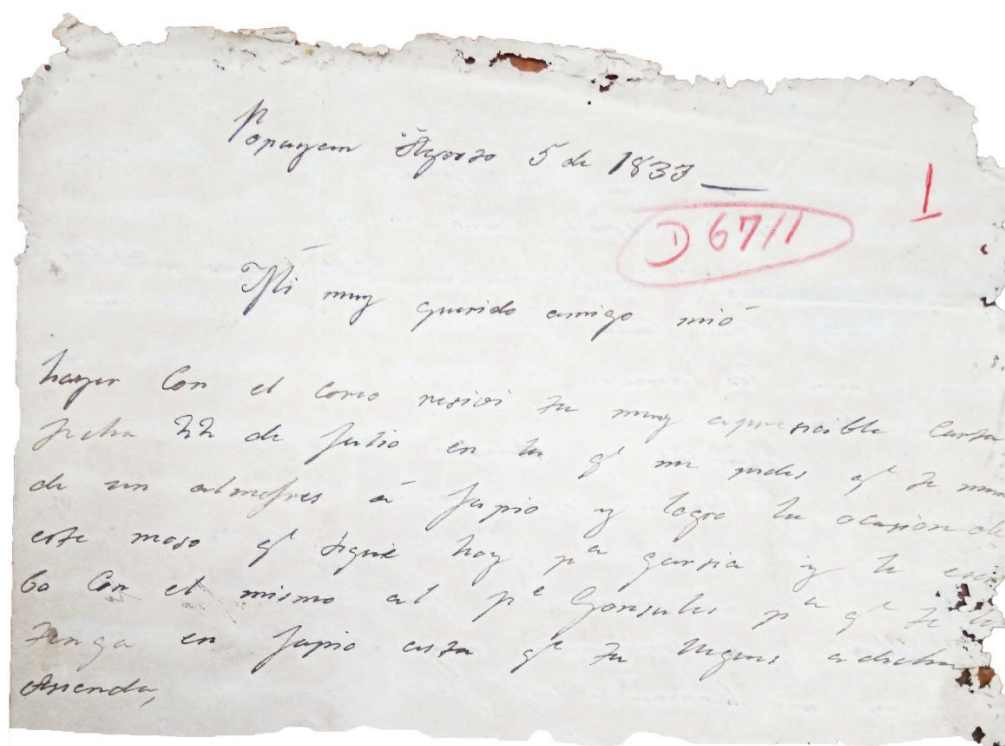 Popayan Agosto 5 de 1833
1
D 6711
Mi muy querido amigo mio
hayer Con el coreo resivi tu muy apresciable Carta
fecha 22 de Julio en la qe me pides qe te
de un almofres á Japio y logro la ocasion de
este moso qe sigue hoy pa garsia y le escri
bo Con el mismo al pe Gonsales pa qe te lo
tenga en Japio asta qe tu llegues a dicha
Asienda,